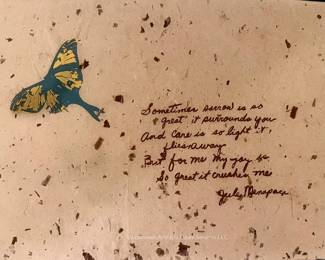 Sometimes sorrow is so
great it surrounds you
And Care is so light it,
flies away
But for me my joy is
So great it crushes me
July